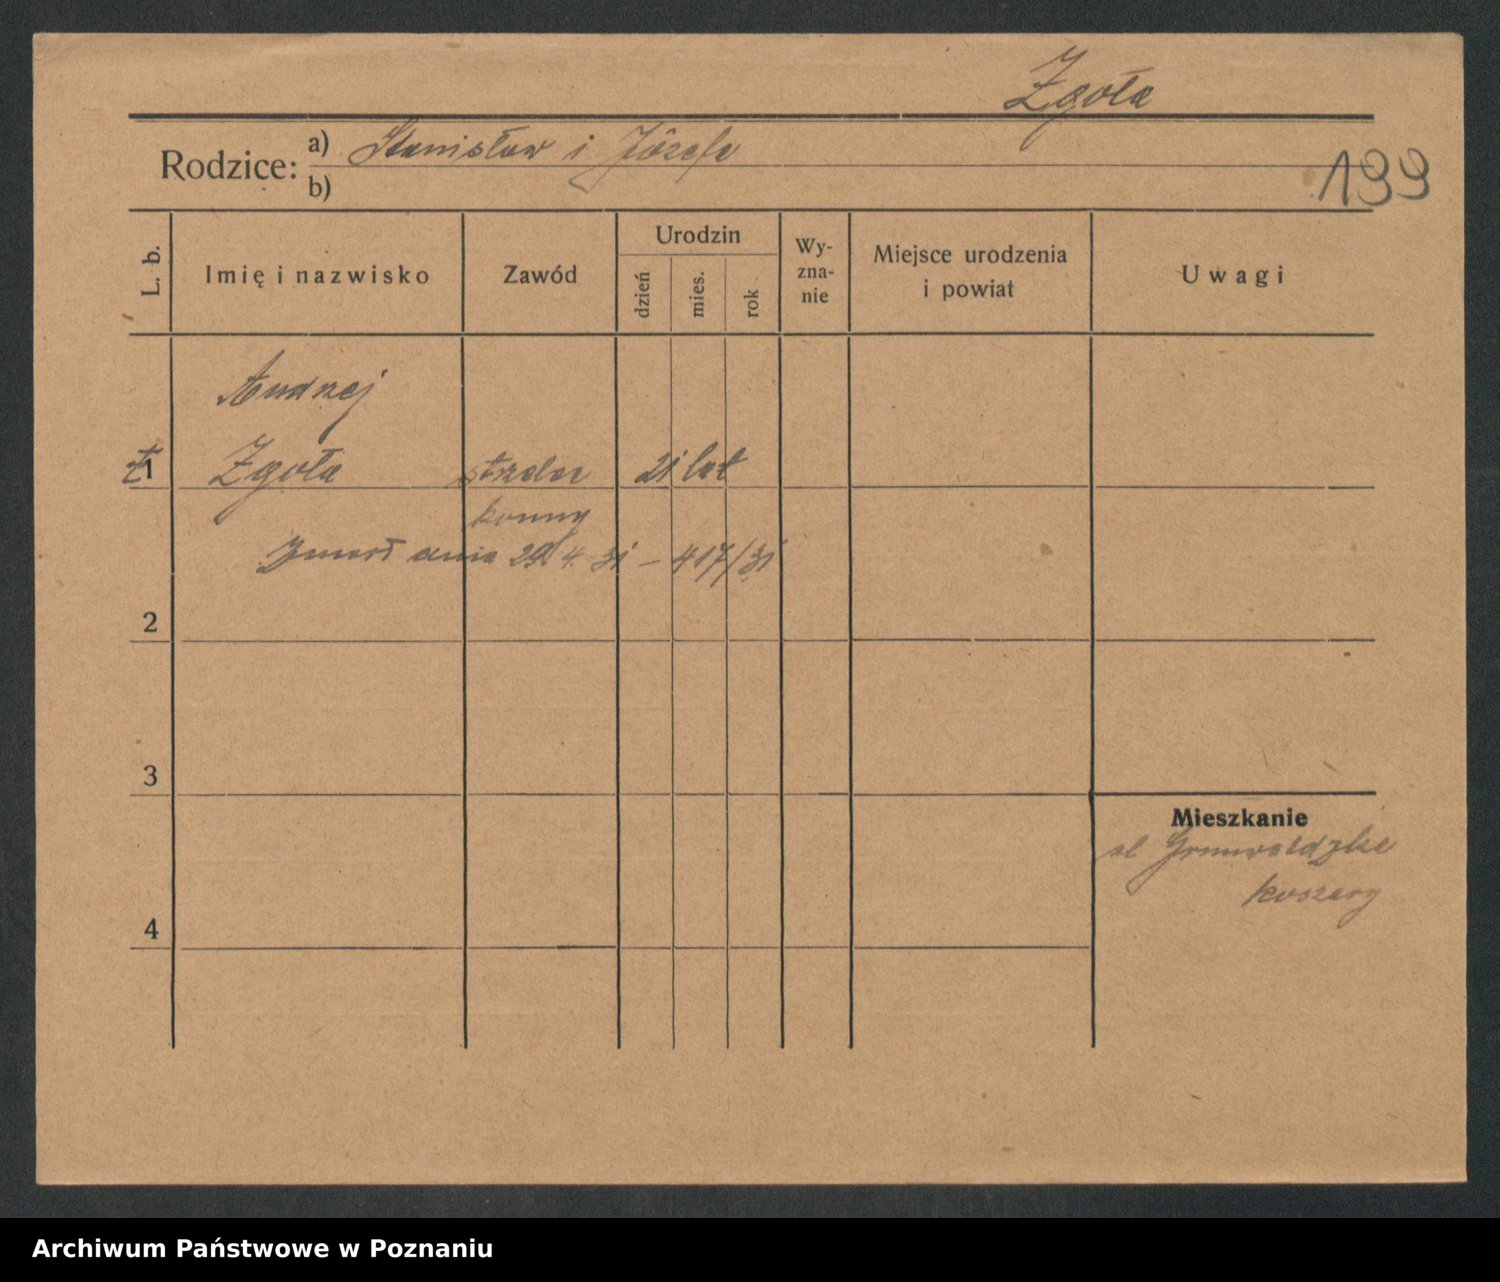 Zgoła
Rodzice: a) Stanisław i Józefa
b)
199
L. b.
Imię i nazwisko
Zawód
Urodzin
dzień
mies.
rok
Wy-
zna-
nie
Miejsce urodzenia
i powiat
Uwagi
Andrzej
1 Zgoła strzelec 21 lat
konny
Zmarł dnia 29. 4. 31 – 417/31
2
3
4
Mieszkanie
ul Grunwaldzka
koszary
Archiwum Państwowe w Poznaniu